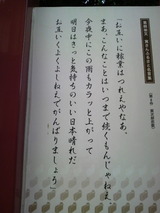 「お互いに稼業はつれえやなあ。
まあ、こんなことはいつまで続くもんじゃねえ。
今夜中にこの雨もカラッと上がって
明日はきっと気持ちのいい日本晴れだ。
お互いくよくよしねえでがんばりましょう」